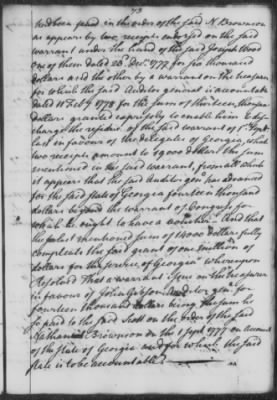 73
had been paid in the order of the said N. Brownson
as appears by two receipts endorsed on the said
warrant under the hand of the said Joseph Wood
one of them dated 23d. Decr. 1777 for six thousand
dollars and the other by a warrant on the treasurer
for which the said Auditor general is accountable
dated 18 Feby 1778 for the sum of thirteen thousand
dollars granted expressly to enable him to dis-
charge the residue of the said warrant of 1st. Sept
last in favour of the delegates of Georgia, which
two receipts amount to 19000 dollars the sum
mentioned in the said warrant, from all which
it appears that the said Auditor genl. has advanced
for the said state of Georgia fourteen thousand
dollars beyond the warrant of Congress for
which he ought to have a voucher. And that
the said last mentioned sum of 14000 dollars fully
compleats the said grant of one million of
dollars for the service of Georgia whereupon
Resolved That a warrant issue on the treasurer
in favour of John Gibson Auditor genl for
fourteen thousand dollars being the sum he
so paid to the said Scott on the order of the said
Nathaniel Brownson on the 1 Sept. 1777 on account
of the state of Georgia and for which the said
state is to be accountable